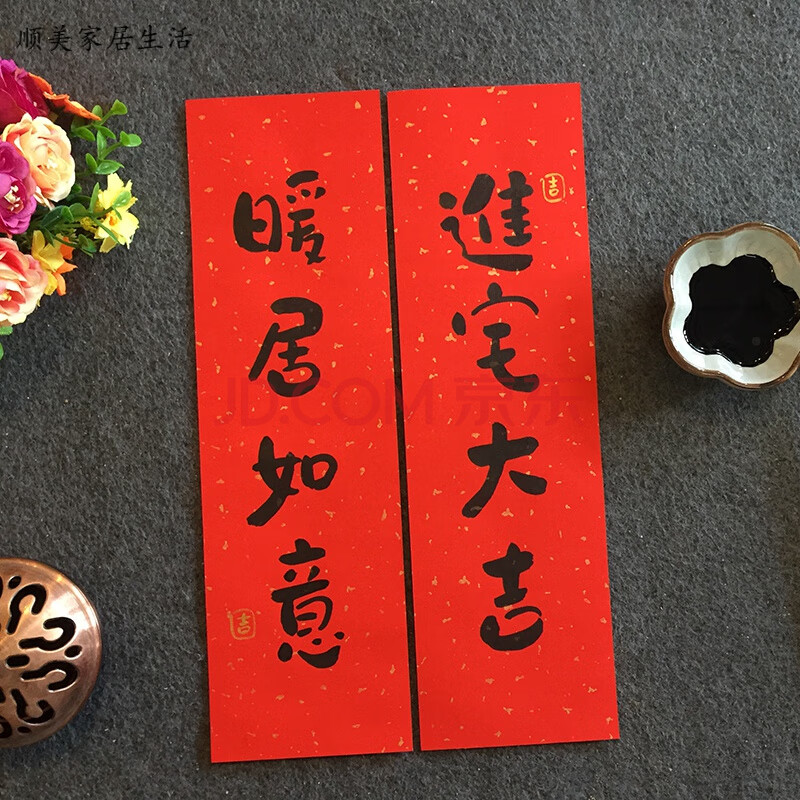 顺美家居生活
進宅大吉
吉
暖居如意
吉
JD.COM 京东